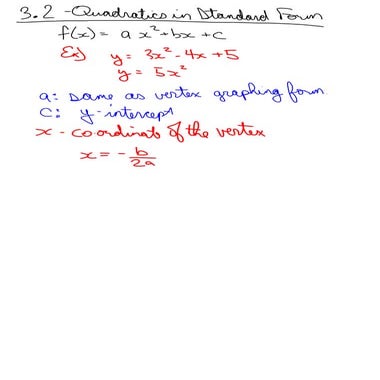 3.2 - Quadratics in Standard Form
f(x) = a x² + bx + c
Ex) y = 3x² - 4x + 5
y = 5x²
a: same as vertex graphing form
c: y-intercept
x - coordinate of the vertex
x = - b/2a